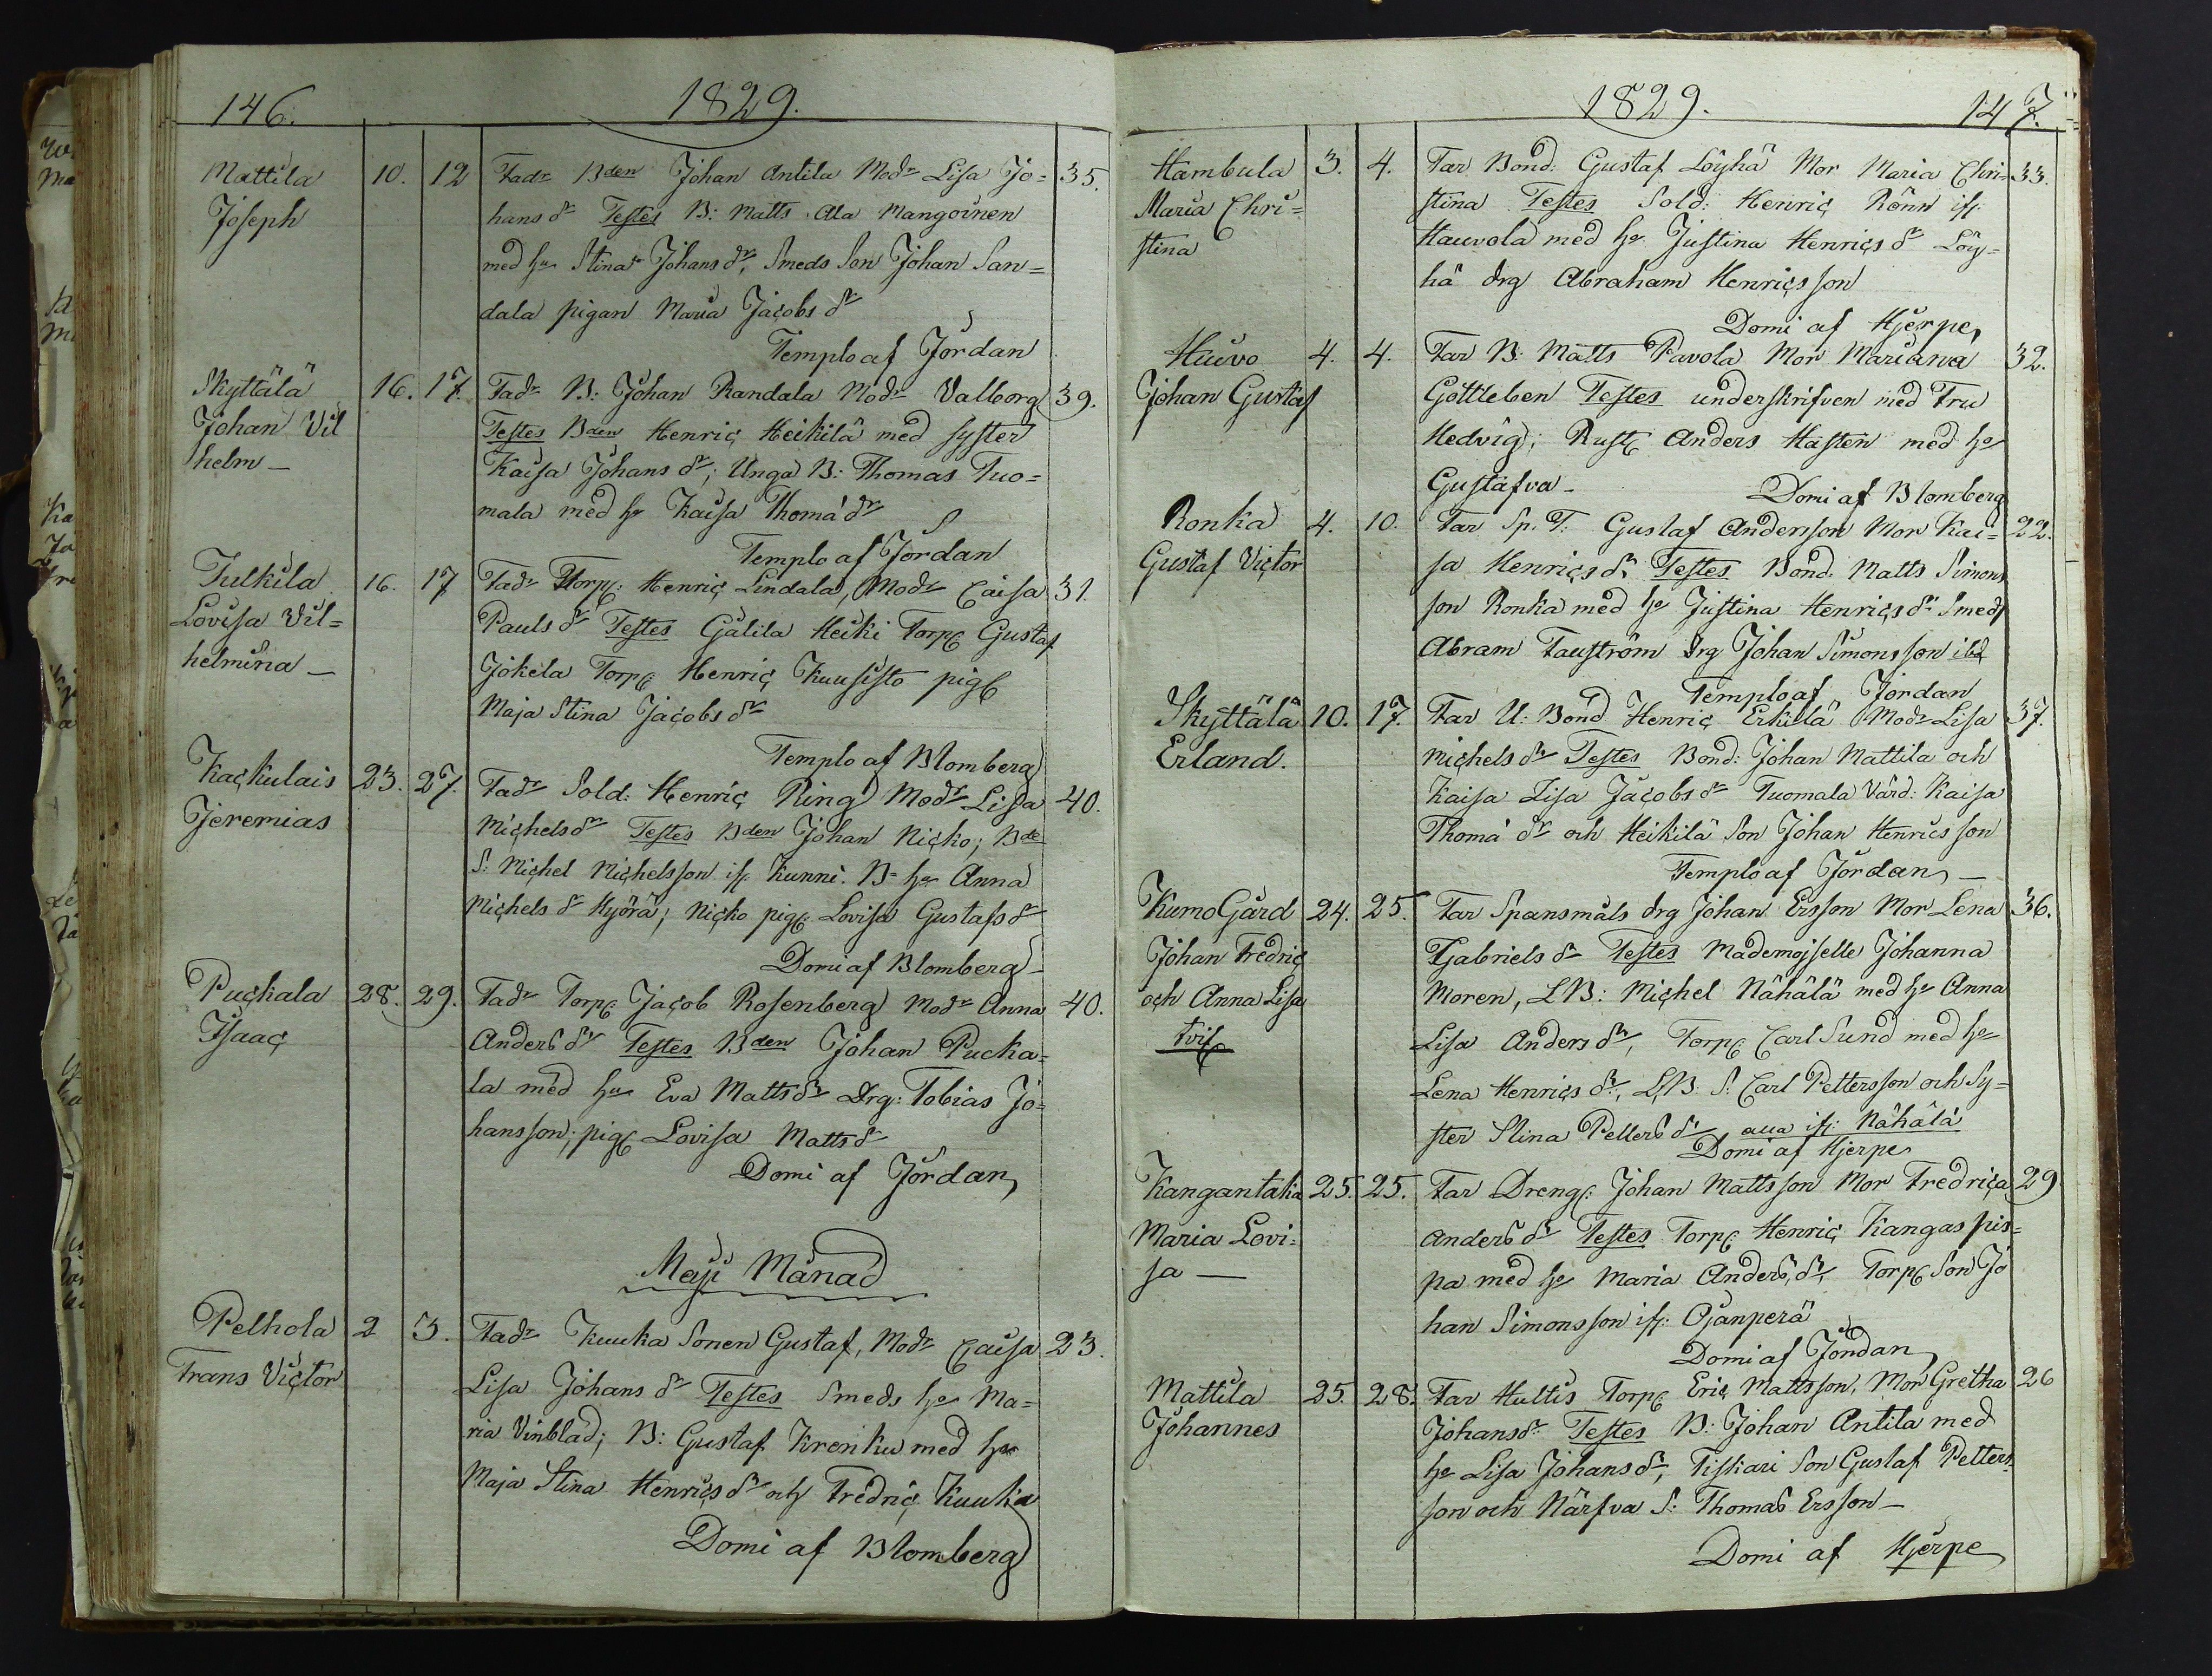 146.
1829.
Mattila 10. 12 Fadr Bden Johan Antila Modr Lisa Jo= 35.
Joseph hans dr Testes B: Matts Ala Mangoinen
med hu Stina Johans dr, Smeds Son Johan San=
dala pigan Maria Jacobs dr
Templo af Jordan
Skyttälä 16. 17. Fadr B: Johan Randala Modr Valborg 39.
Johan Vil Testes Bden Henric Heikilä med syster
helm – Kaisa Johans dr; Unga B: Thomas Tuo=
mala med hu Kaisa Thomä dr
Templo af Jordan
Julkila 16. 17 Fadr Torp: Henric Lindala, Modr Caisa 31.
Lovisa Vil= Pauls dr Testes Gälila Heiki Torp Gustaf
helmina – Jokela Torp Henric Kuusisto pig
Maja Stina Jacobs dr
Templo af Blomberg
Kackulais 23. 27. Fadr Sold: Henric Ring Modr Lisa 40.
Jeremias Michels dr Testes Bden Johan Nicko; Bde
S: Michel Michelsson if: Kunni. B= hu Anna
Michels dr Kyörä; Nicko pig Lovisa Gustafs dr
Domi af Blomberg
Puckala 28. 29. Fadr Torp Jacob Rosenberg Modr Anna 40.
Isaac Anders dr Testes Bden Johan Pucka=
la med hu Eva Matts dr Drg: Tobias Jo=
hansson; pig Lovisa Matts dr
Domi af Jordan
Maji Månad
Pelhola 2 3. Fadr Kuuka Sonen Gustaf, Modr Caisa 23.
Frans Victor Lisa Johans dr Testes Smeds hu Ma=
ria Vinblad; B: Gustaf Krenku med hu
Maja Stina Henrics dr och Fredric Kuuka
Domi af Blomberg
1829.
147.
Hambula 3. 4. Far Bond: Gustaf Löyhä Mor Maria Chri= 33.
Maria Chri= stina Testes Sold: Henric Rönn if:
stina Hauvola med hu Justina Henrics dr Löy=
hä drg Abraham Henricsson
Domi af Hjerpe
Huivo 4. 4. Far B: Matts Pavola Mor Mariana 32.
Johan Gustaf Gottleben Testes underskrifven med Fru
Hedvig; Rust Anders Hasten med hu
Gustafva – Domi af Blomberg
Ronka 4. 10. Far Sp. T: Gustaf Andersson Mor Kai= 22.
Gustaf Victor sa Henrics dr Testes Bond Matts Simons
son Ronka med hu Justina Henrics dr Smed
Abram Tauström drg Johan Simonsson ibd
Templo af Jordan
Skyttälä 10. 17. Far U: Bond Henric Erkilä Modr Lisa 37.
Erland. Michels dr Testes Bond: Johan Mattila och
Kaisa Lisa Jacobs dr Tuomala Värd: Kaisa
Thomä dr och Heikilä Son Johan Henricsson
Templo af Jordan –
Kumo Gård 24. 25. Far Spansmåls drg Johan Ersson Mor Lena 36.
Johan Fredric Gabriels dr Testes Mademojselle Johanna
och Anna Lisa Moren, LB: Michel Nähälä med hu Anna
tvil Lisa Anders dr, Torp Carl Sund med hu
Lena Henrics dr, LB. S: Carl Pettersson och Sy=
ster Stina Petters dr if: Nähälä
Domi af Hjerpe
Kangantaka 25. 25. Far Dreng: Johan Mattsson Mor Fredrica 29
Maria Lovi= Anders dr Testes Torp Henric Kangas pis=
sa — pa med hu Maria Anders dr, Torp Son Jo
han Simonsson if: Ojanperä
Domi af Jordan
Mattila 25. 28. Far Hultis Torp Eric Mattsson, Mor Gretha 26
Johannes Johans dr Testes B: Johan Antila med
hu Lisa Johans dr, Tiskari Son Gustaf Petters
son och Närfva S: Thomas Ersson –
Domi af Hjerpe